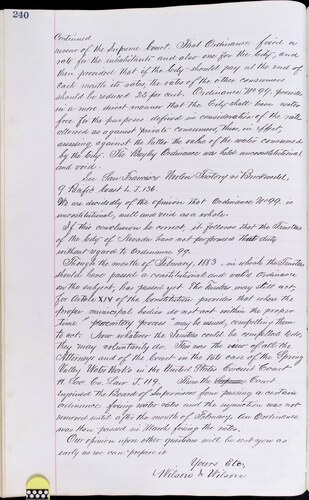 240
Continued
of the Supreme Court. That Ordinance fixed a
rate for the inhabitants and also one for the City, and
then provided that if the City should pay at the end of
each month its rates, the rates of the other consumers
should be reduced 25 per cent. Ordinance No 99. provides
in a more direct manner that the City shall have water
free for the purposes defined in consideration of the rates
allowed as against private consumers, thus, in effect,
assessing against the latter the value of the water consumed
by the City. The Bayley Ordinance was held unconstitutional
and void.
See San Francisco Woolen Factory vs
9 Pacific Coast L. J. 136.
We are decidedly of the opinion that Ordinance No 99. is
unconstitutional, null and void as a whole.
If this conclusion be correct, it follows that the Trustees
of the City of Nevada have not performed their duty
without regard to Ordinance 99.
Though the month of February, 1883, in which the Trustees
should have passed a constitutional and valid Ordinance
on the subject, has passed yet the Trustees may still act,
for Article XIV of the Constitution provides that when the
proper municipal bodies do not act within the proper
time "peremptory process" may be issued, compelling them
to act. Now whatever the Trustees could be compelled to do,
they may voluntarily do. This was the view of all the
Attorneys and of the Court in the late case of the Spring
Valley Water Works in the United States Circuit Court
11. Pac. Co. Law J. 119. There the Court
enjoined the Board of Supervisors from passing a certain
ordinance fixing water rates and the injunction was not
removed until after the month of February. An Ordinance
was then passed in March fixing the rates.
Our opinion upon other questions will be sent you as
early as we can prepare it
Yours Etc,
Wilson & Wilson